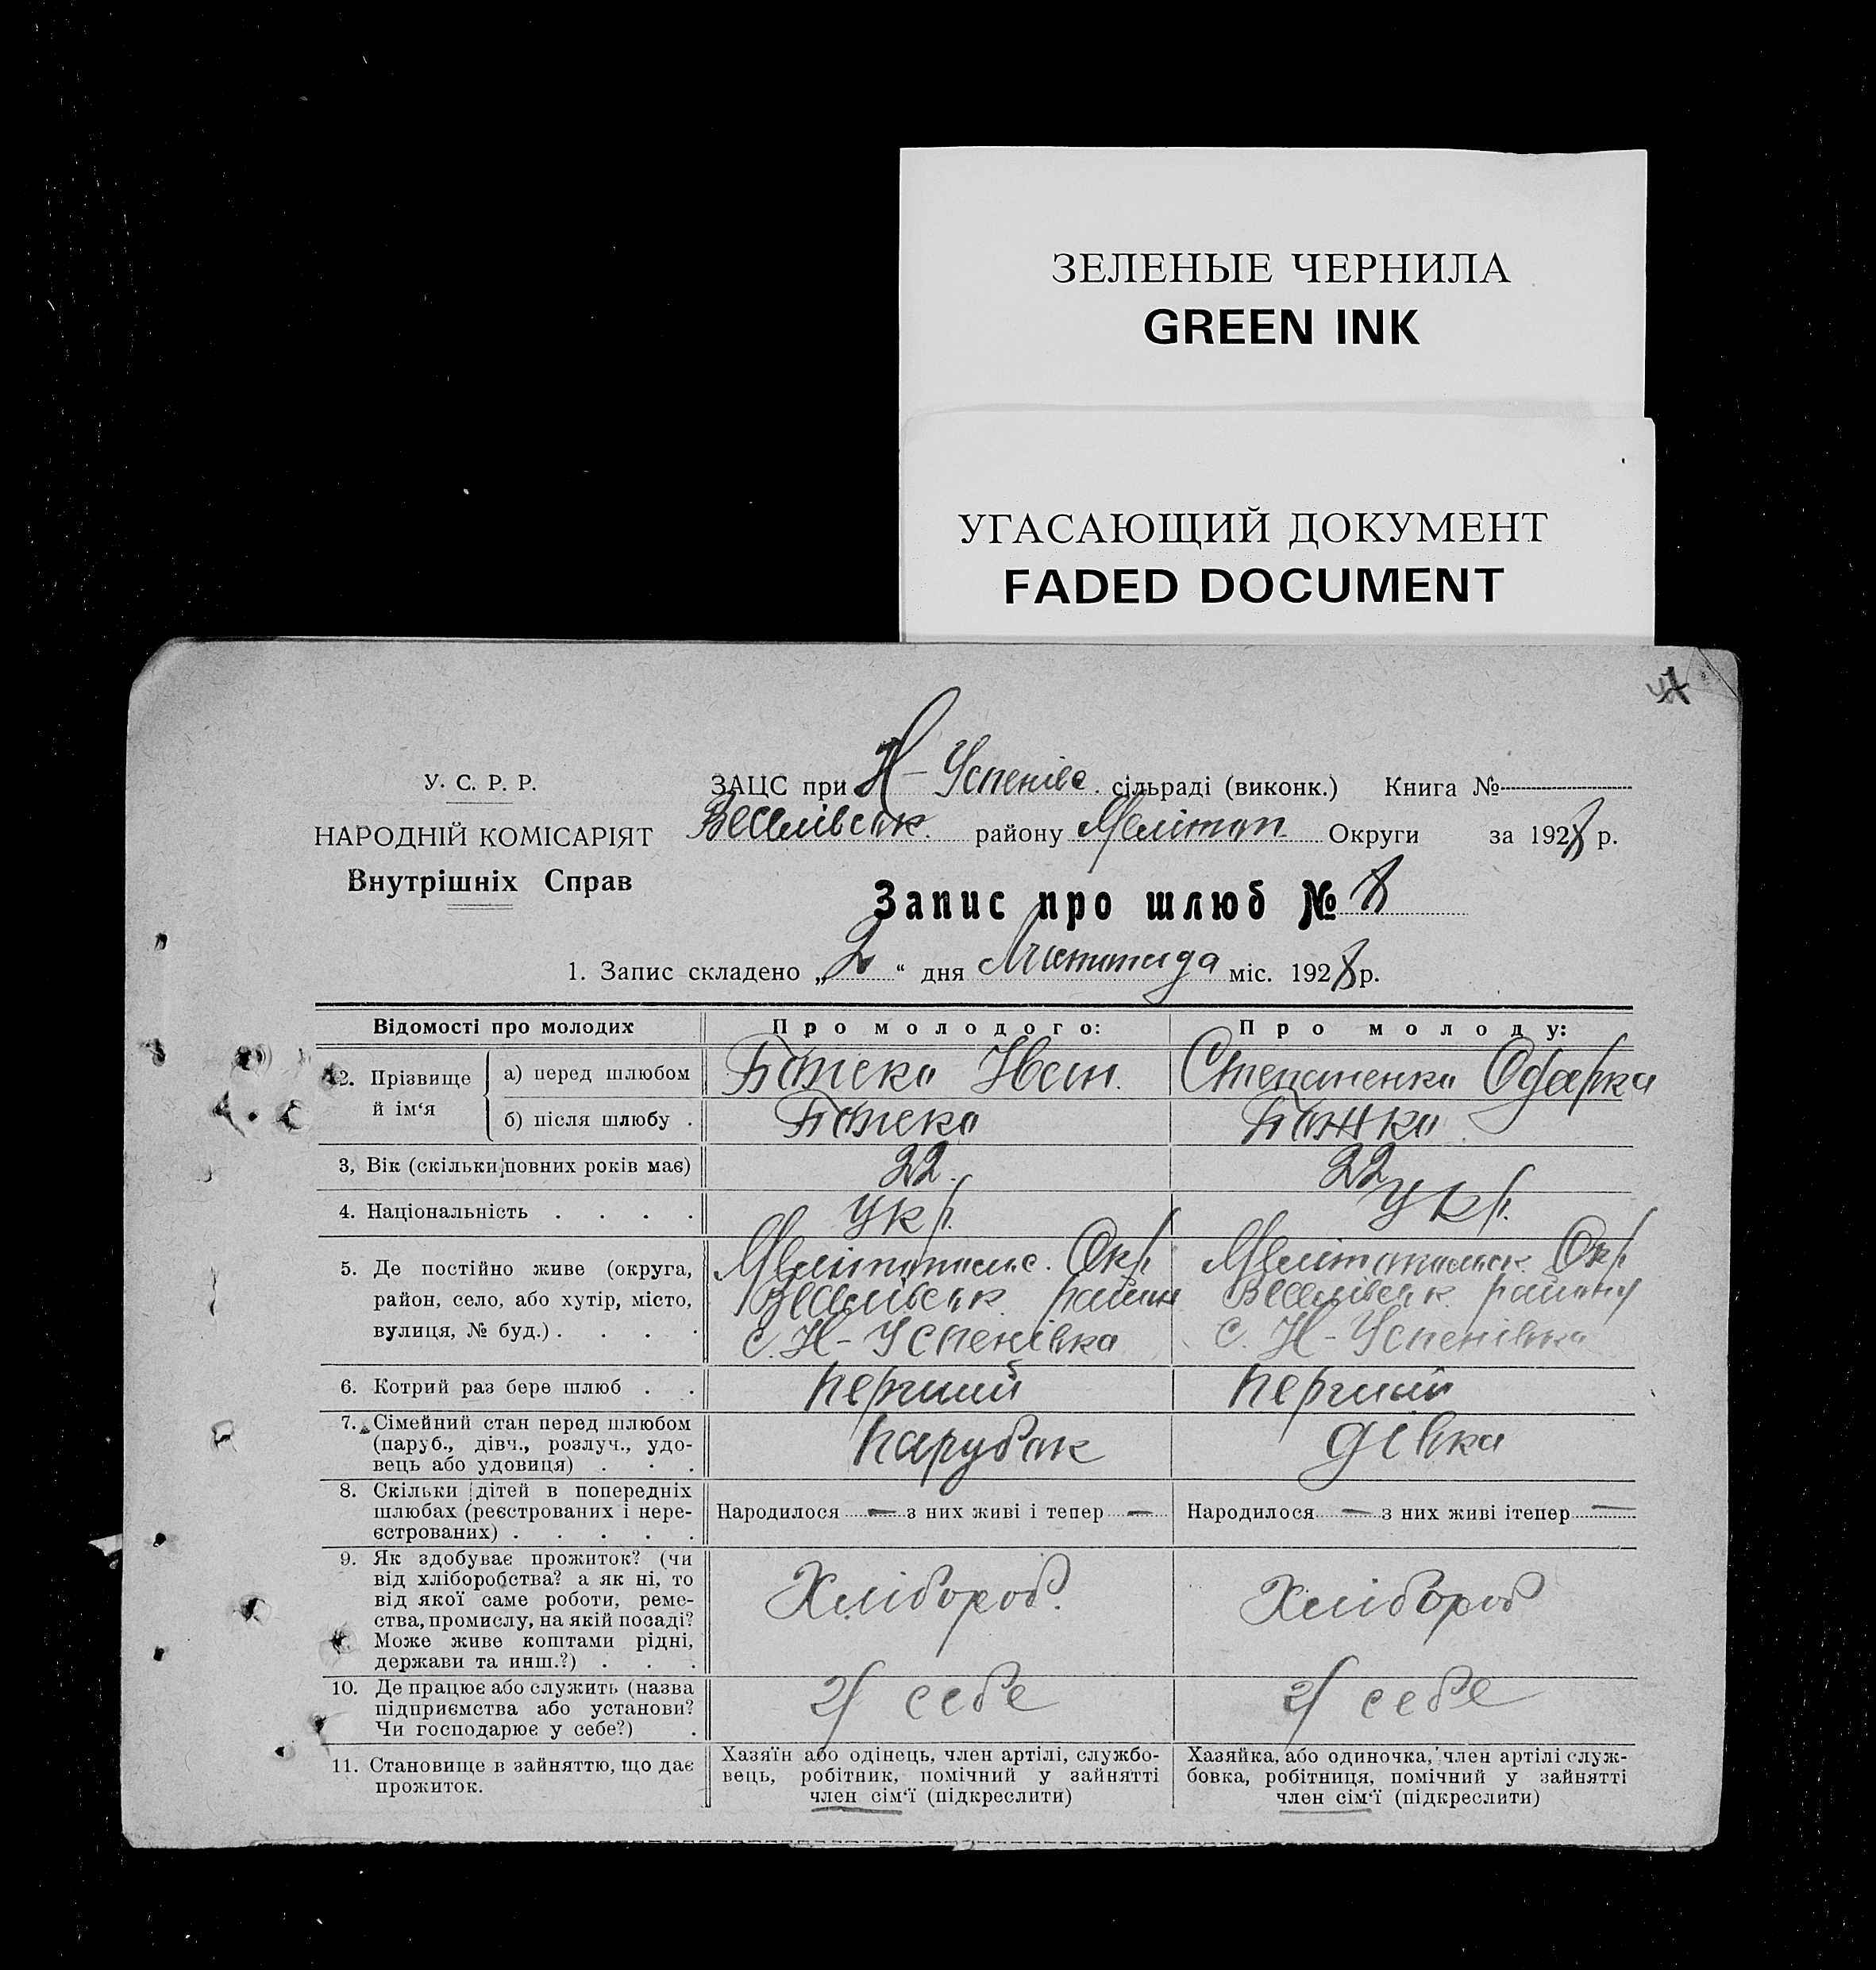 ЗЕЛЕНЫЕ ЧЕРНИЛА
GREEN INK
УГАСАЮЩИЙ ДОКУМЕНТ
FADED DOCUMENT
У. С. Р. Р.
НАРОДНІЙ КОМІСАРІЯТ
Внутрішніх Справ
ЗАЦС при Н-Успенівс. сільраді (виконк.) Книга №
Веселівськ. району Мелітоп Округи за 1928 р.
Запис про шлюб № 8
1. Запис складено „2“ дня Листопада міс. 1928 р.
Відомості про молодих
Про молодого:
Про молоду:
2. Прізвище й ім‘я
а) перед шлюбом
Іван
Степаненко Одарка
б) після шлюбу .
3, Вік (скільки повних років має)
22.
22
4. Національність . . . .
Укр.
Укр.
5. Де постійно живе (округа,
район, село, або хутір, місто,
вулиця, № буд.) . . . .
Мелітопольс. Окр
Веселівськ. район
с. Н-Успенівка
Мелітопольськ. Окр
Веселівськ. району
с. Н-Успенівка
6. Котрий раз бере шлюб . .
перший
перший
7. Сімейний стан перед шлюбом
(паруб., дівч., розлуч., удо-
вець або удовиця) . . .
парубок
дівка
8. Скільки дітей в попередніх
шлюбах (реєстрованих і нере-
єстрованих) . . . . .
Народилося — з них живі і тепер —
Народилося — з них живі ітепер —
9. Як здобуває прожиток? (чи
від хліборобства? а як ні, то
від якої саме роботи, реме-
ства, промислу, на якій посаді?
Може живе коштами рідні,
держави та инш.?) . . .
Хлібороб.
Хлібороб
10. Де працює або служить (назва
підприємства або установи?
Чи господарює у себе?) .
у себе
у себе
11. Становище в зайняттю, що дає
прожиток.
Хазяїн або одінець, член артілі, службо-
вець, робітник, помічний у зайнятті
член сім‘ї (підкреслити)
Хазяйка, або одиночка, член артілі служ-
бовка, робітниця, помічний у зайнятті
член сім‘ї (підкреслити)